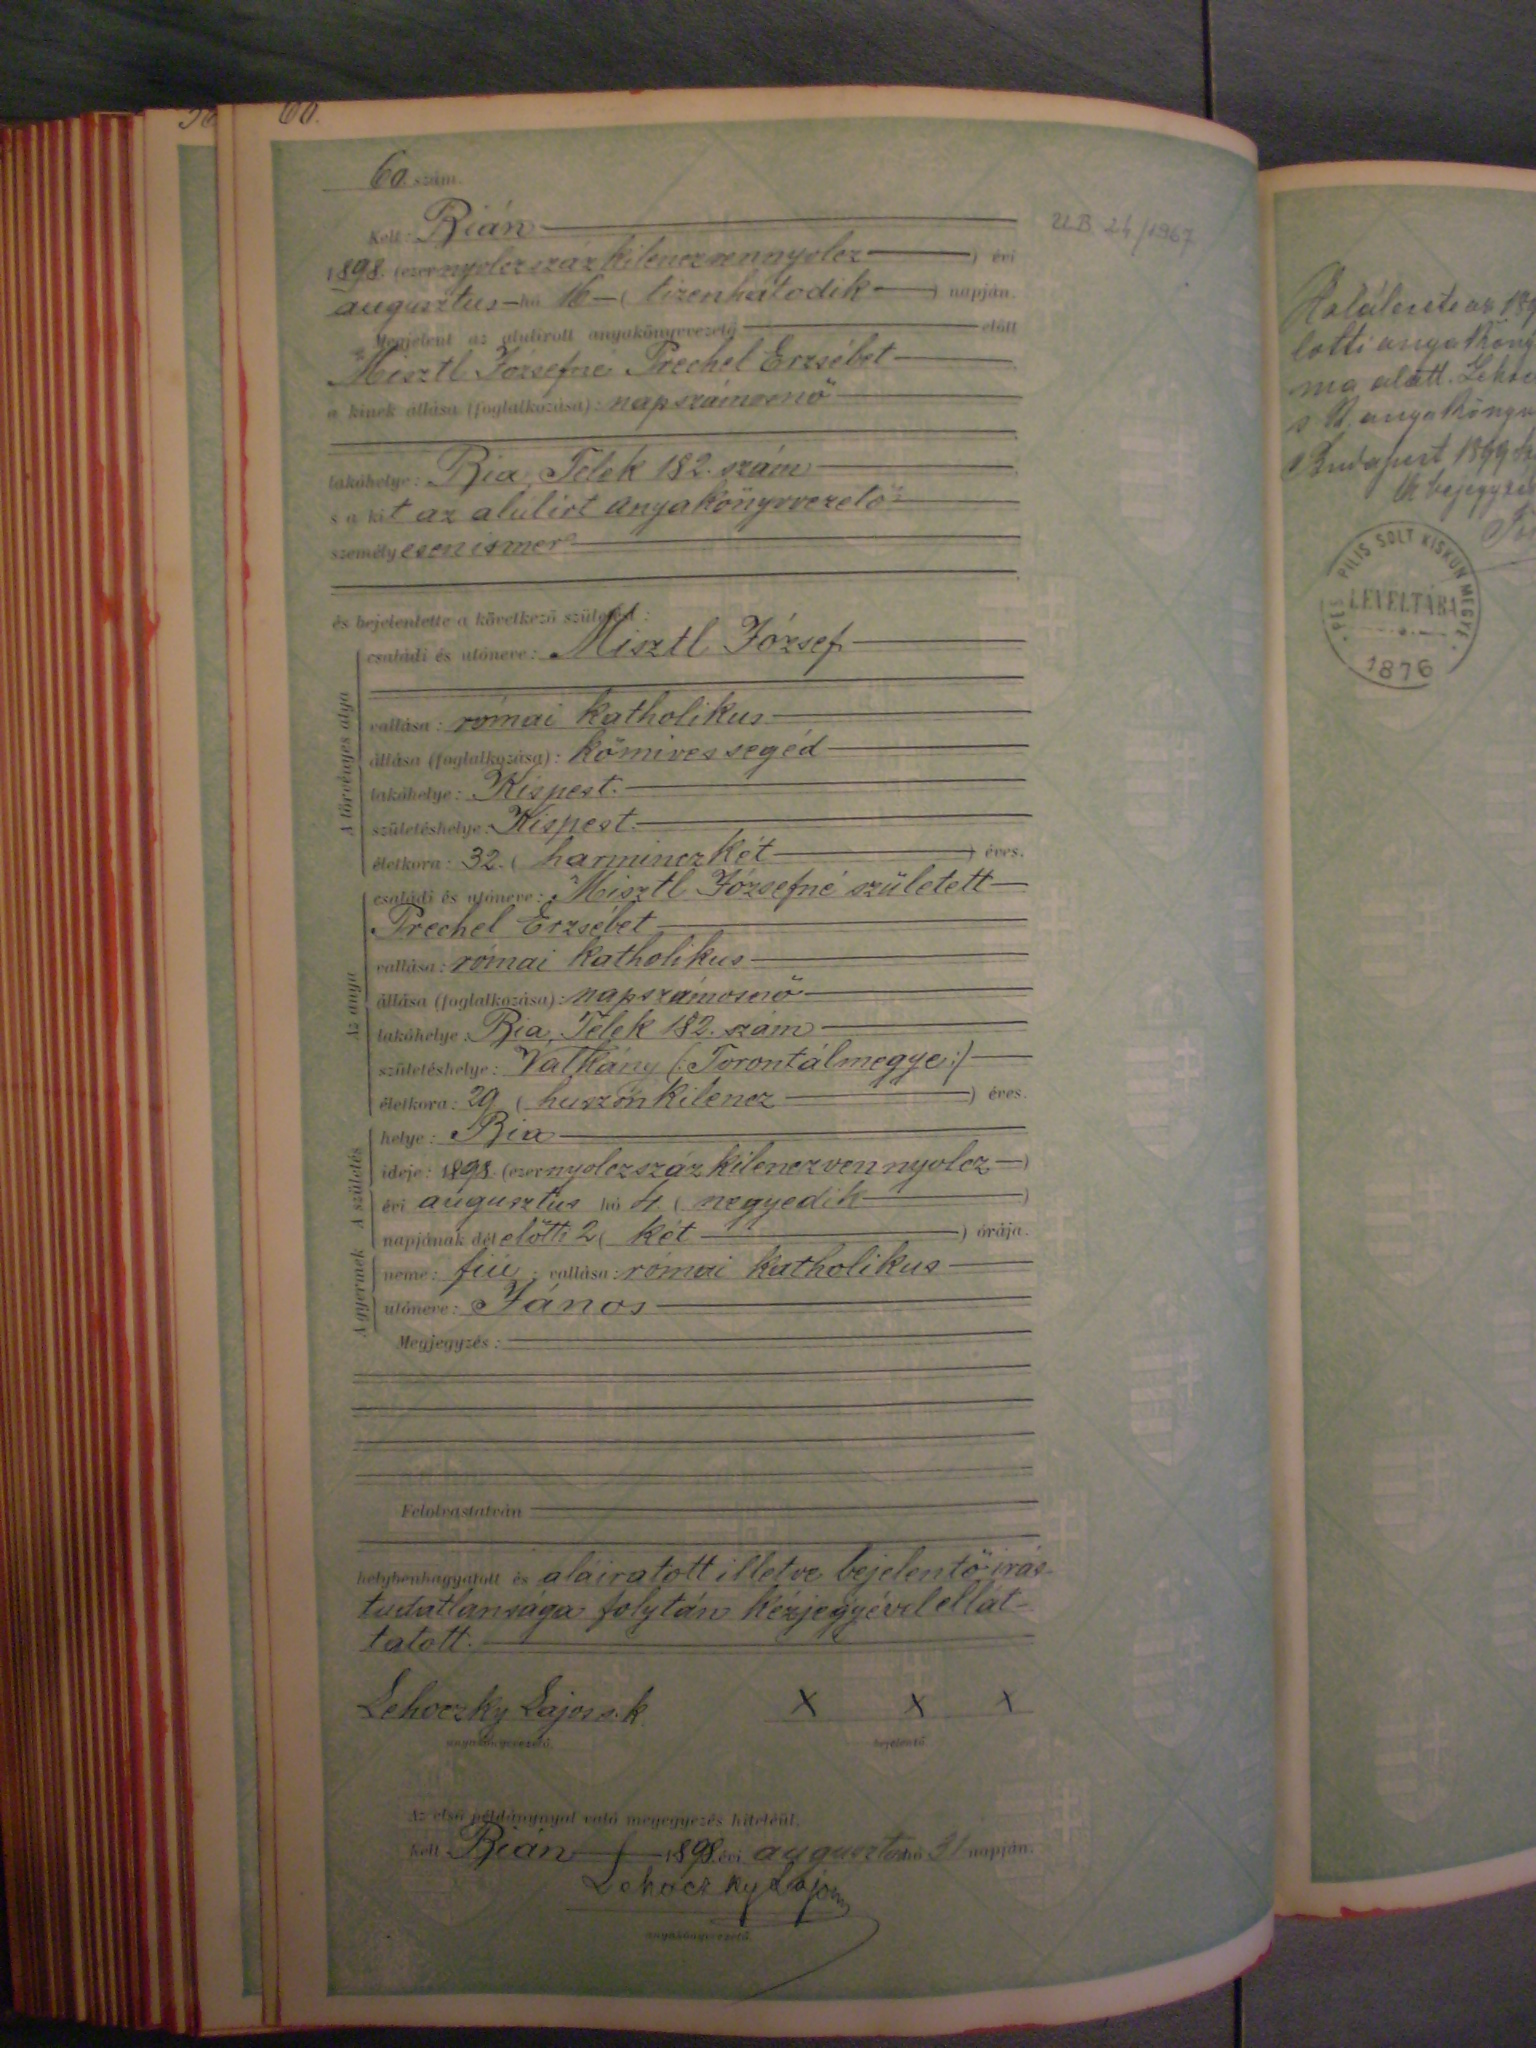 60.
60. szám.
Kelt: Bián
U.B. 24/1967
1898. (ezernyolczszázkilenczvennyolcz) évi
augusztus hó 16 (tizenhatodik) napján.
Megjelent az alulirott anyakönyvvezető előtt
Misztl Józsefné Prechel Erzsébet
a kinek állása (foglalkozása): napszámosnő
lakóhelye: Bia, Telek 182. szám
s a kit az alulirt anyakönyvvezető
személyesen ismer
és bejelentette a következő születést:
A törvényes atyja
családi és utóneve: Misztl József
vallása: római katholikus
állása (foglalkozása): kőmives segéd
lakóhelye: Kispest.
születéshelye: Kispest.
életkora: 32. (harminczkét) éves.
Az anya
családi és utóneve: Misztl Józsefné született
Prechel Erzsébet
vallása: római katholikus
állása (foglalkozása): napszámosnő
lakóhelye: Bia, Telek 182. szám
születéshelye: Valkány (:Torontálmegye:)
életkora: 29 (huszonkilencz) éves.
A születés
helye: Bia
ideje: 1898. (ezernyolczszázkilenczvennyolcz)
évi augusztus hó 4. (negyedik)
napjának délelőtti 2 (két) órája.
A gyermek
neme: fiú; vallása: római katholikus
utóneve: János
Megjegyzés:
Felolvastatván
helybenhagyatott és aláiratott illetve bejelentő irás-
tudatlansága folytán kézjegyével ellát-
tatott.
Lehoczky Lajos s. k. X X X
anyakönyvvezető. bejelentő
Az első példánynyal való megegyezés hiteléül.
Kelt Bián 1898. évi augusztus hó 31 napján.
Lehoczky Lajos
anyakönyvvezető.
lotti anyaköny
ma alatt.
s k. anyakönyv
Budapest 1899
PEST PILIS SOLT KISKUN MEGYE
LEVÉLTÁRA
1876